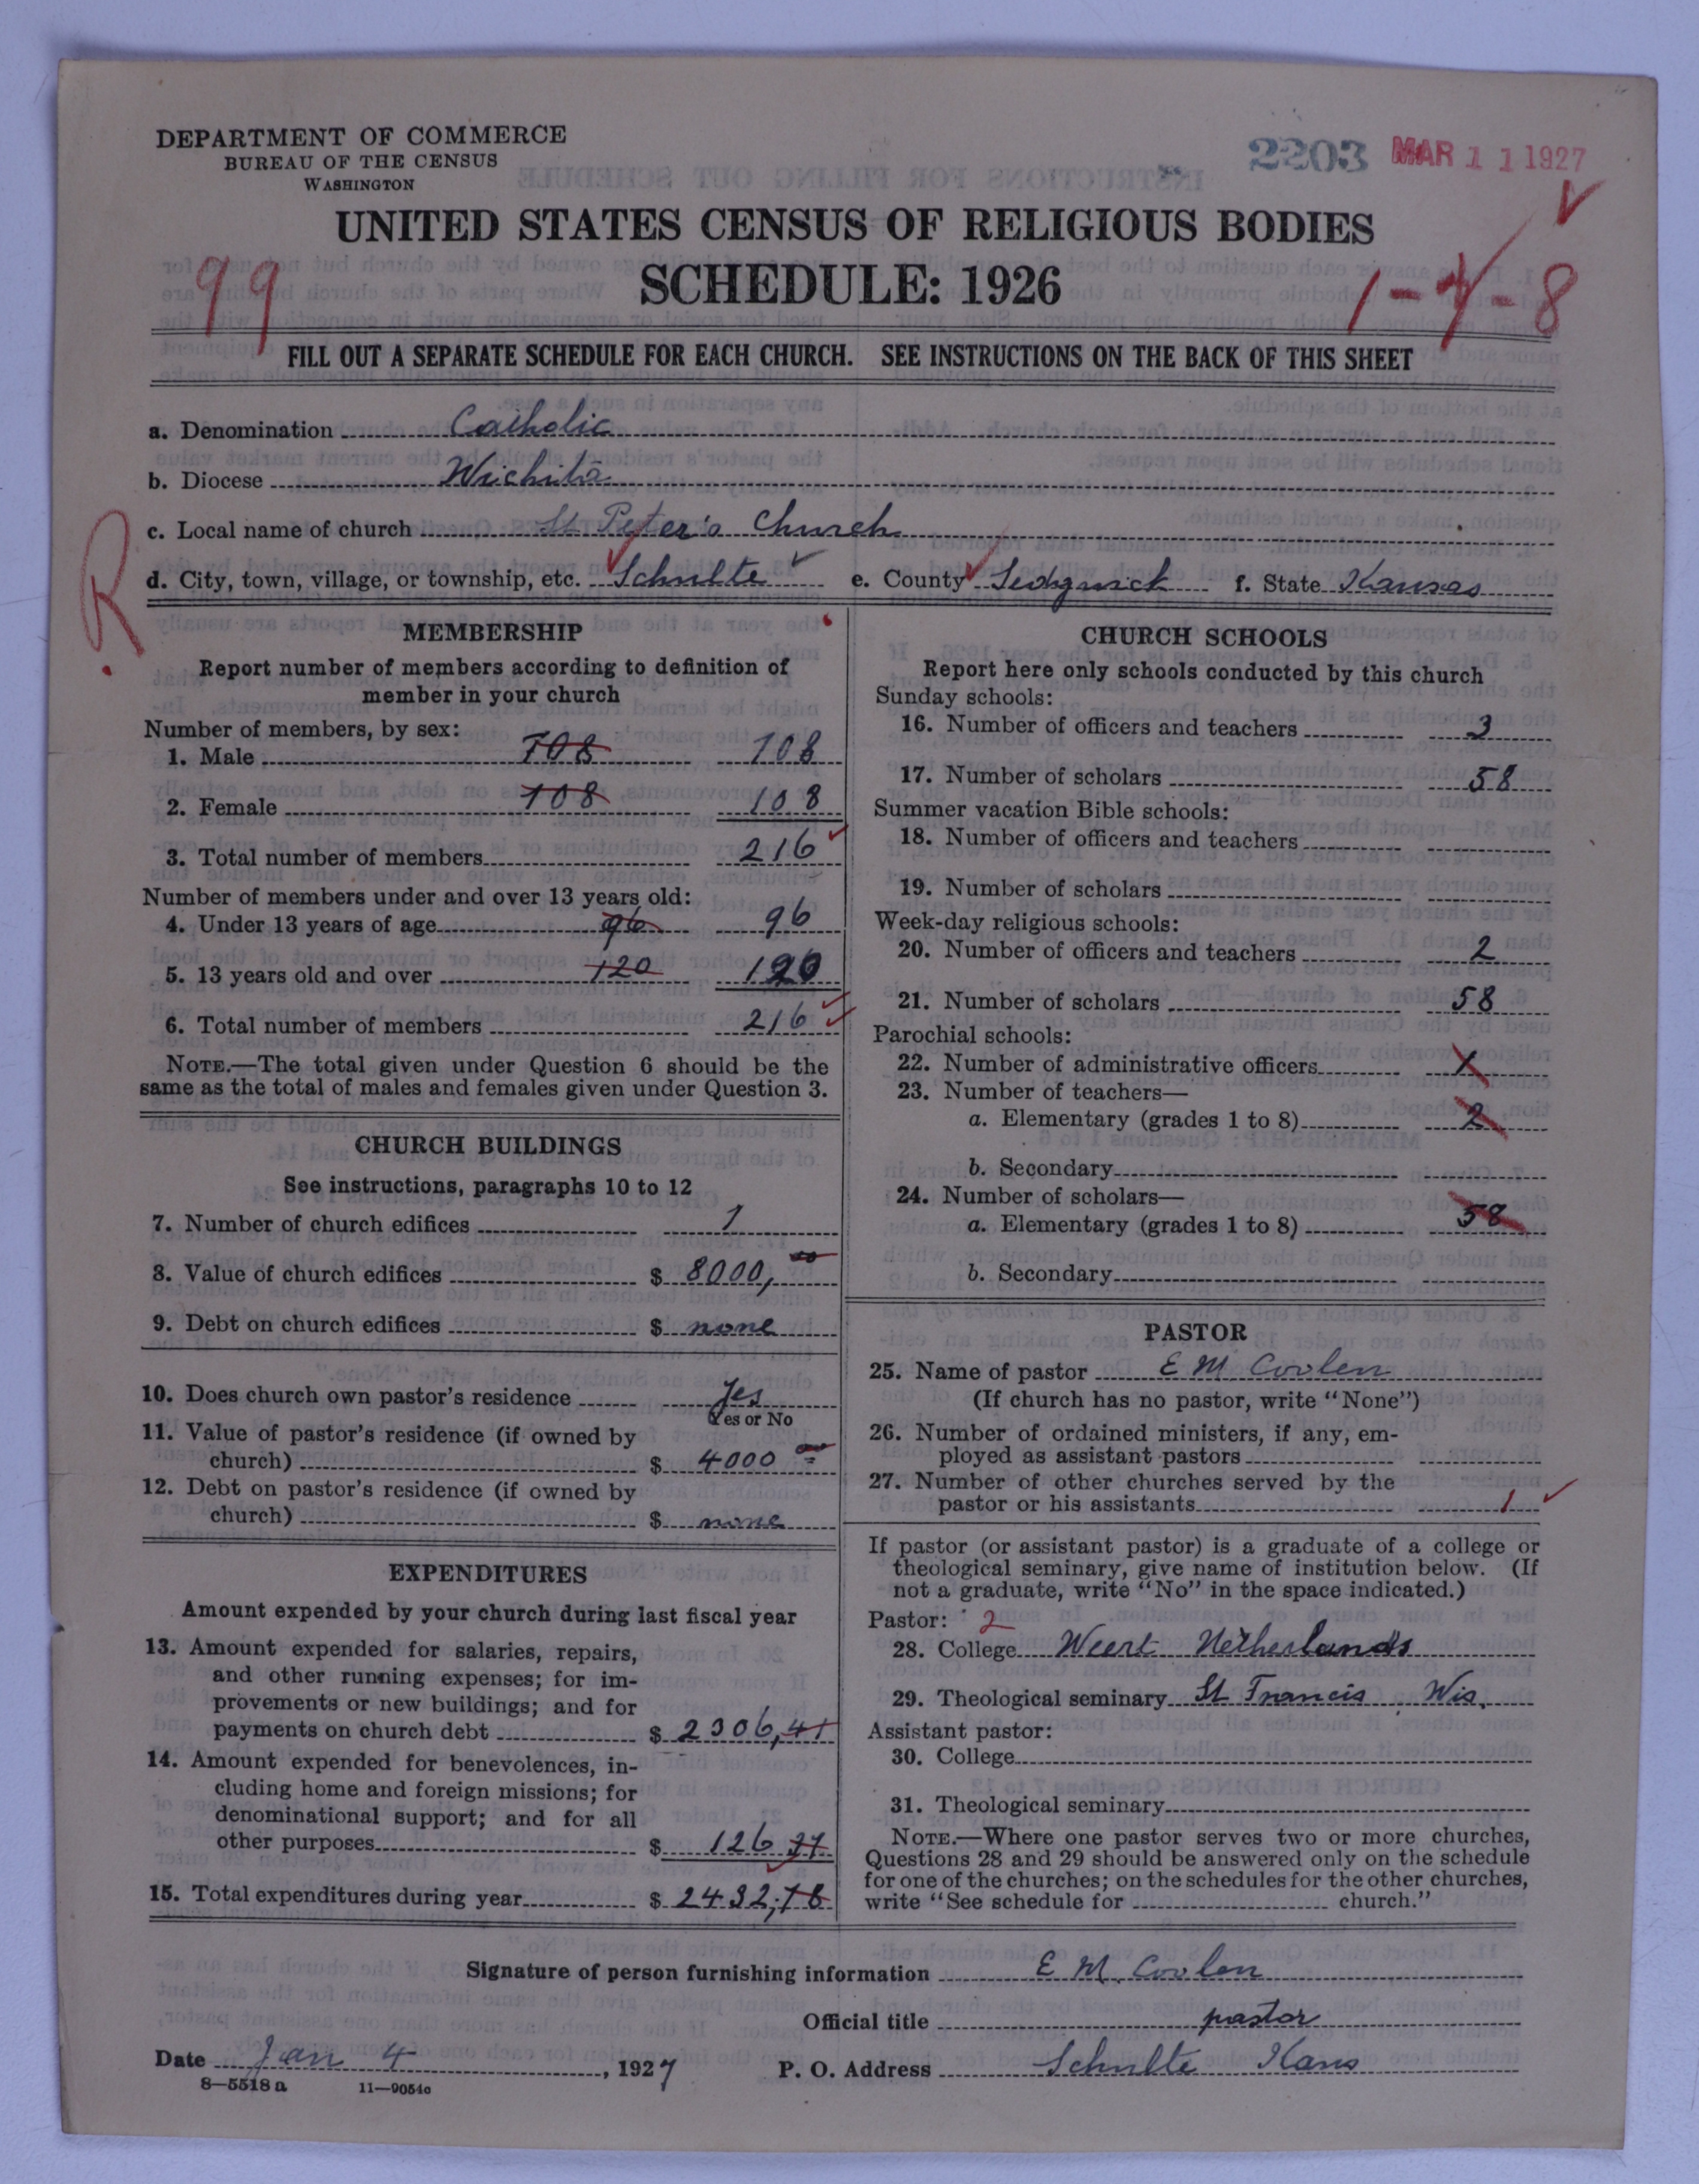 DEPARTMENT OF COMMERCE
BUREAU OF THE CENSUS
WASHINGTON
2203 MAR 11 1927
UNITED STATES CENSUS OF RELIGIOUS BODIES
SCHEDULE: 1926
99
1-4-8
FILL OUT A SEPARATE SCHEDULE FOR EACH CHURCH. SEE INSTRUCTIONS ON THE BACK OF THIS SHEET
a. Denomination Catholic
b. Diocese Wichita
c. Local name of church St Peter's Church
R
d. City, town, village, or township, etc. Schulte e. County Sedgwick f. State Kansas
MEMBERSHIP
Report number of members according to definition of
member in your church
Number of members, by sex:
1. Male 108 108
2. Female 108 108
3. Total number of members 216
Number of members under and over 13 years old:
4. Under 13 years of age 96 96
5. 13 years old and over 120 120
6. Total number of members 216
NOTE.—The total given under Question 6 should be the
same as the total of males and females given under Question 3.
CHURCH BUILDINGS
See instructions, paragraphs 10 to 12
7. Number of church edifices 1
8. Value of church edifices $ 8000,00
9. Debt on church edifices $ none
10. Does church own pastor's residence Yes
Yes or No
11. Value of pastor's residence (if owned by
church) $ 4000 00
12. Debt on pastor's residence (if owned by
church) $ none
EXPENDITURES
Amount expended by your church during last fiscal year
13. Amount expended for salaries, repairs,
and other running expenses; for im-
provements or new buildings; and for
payments on church debt $ 2306,41
14. Amount expended for benevolences, in-
cluding home and foreign missions; for
denominational support; and for all
other purposes $ 126 37
15. Total expenditures during year $ 2432,78
CHURCH SCHOOLS
Report here only schools conducted by this church
Sunday schools:
16. Number of officers and teachers 3
17. Number of scholars 58
Summer vacation Bible schools:
18. Number of officers and teachers
19. Number of scholars
Week-day religious schools:
20. Number of officers and teachers 2
21. Number of scholars 58
Parochial schools:
22. Number of administrative officers 1
23. Number of teachers—
a. Elementary (grades 1 to 8) 2
b. Secondary
24. Number of scholars—
a. Elementary (grades 1 to 8) 58
b. Secondary
PASTOR
25. Name of pastor E M Coolen
(If church has no pastor, write "None")
26. Number of ordained ministers, if any, em-
ployed as assistant pastors
27. Number of other churches served by the
pastor or his assistants 1
If pastor (or assistant pastor) is a graduate of a college or
theological seminary, give name of institution below. (If
not a graduate, write "No" in the space indicated.)
Pastor: 2
28. College Weert Netherlands
29. Theological seminary St Francis Wis.
Assistant pastor:
30. College
31. Theological seminary
NOTE.—Where one pastor serves two or more churches,
Questions 28 and 29 should be answered only on the schedule
for one of the churches; on the schedules for the other churches,
write "See schedule for church."
Signature of person furnishing information E M. Coolen
Official title pastor
Date Jan 4, 1927 P. O. Address Schulte Kans
8—5518 a 11—9054c